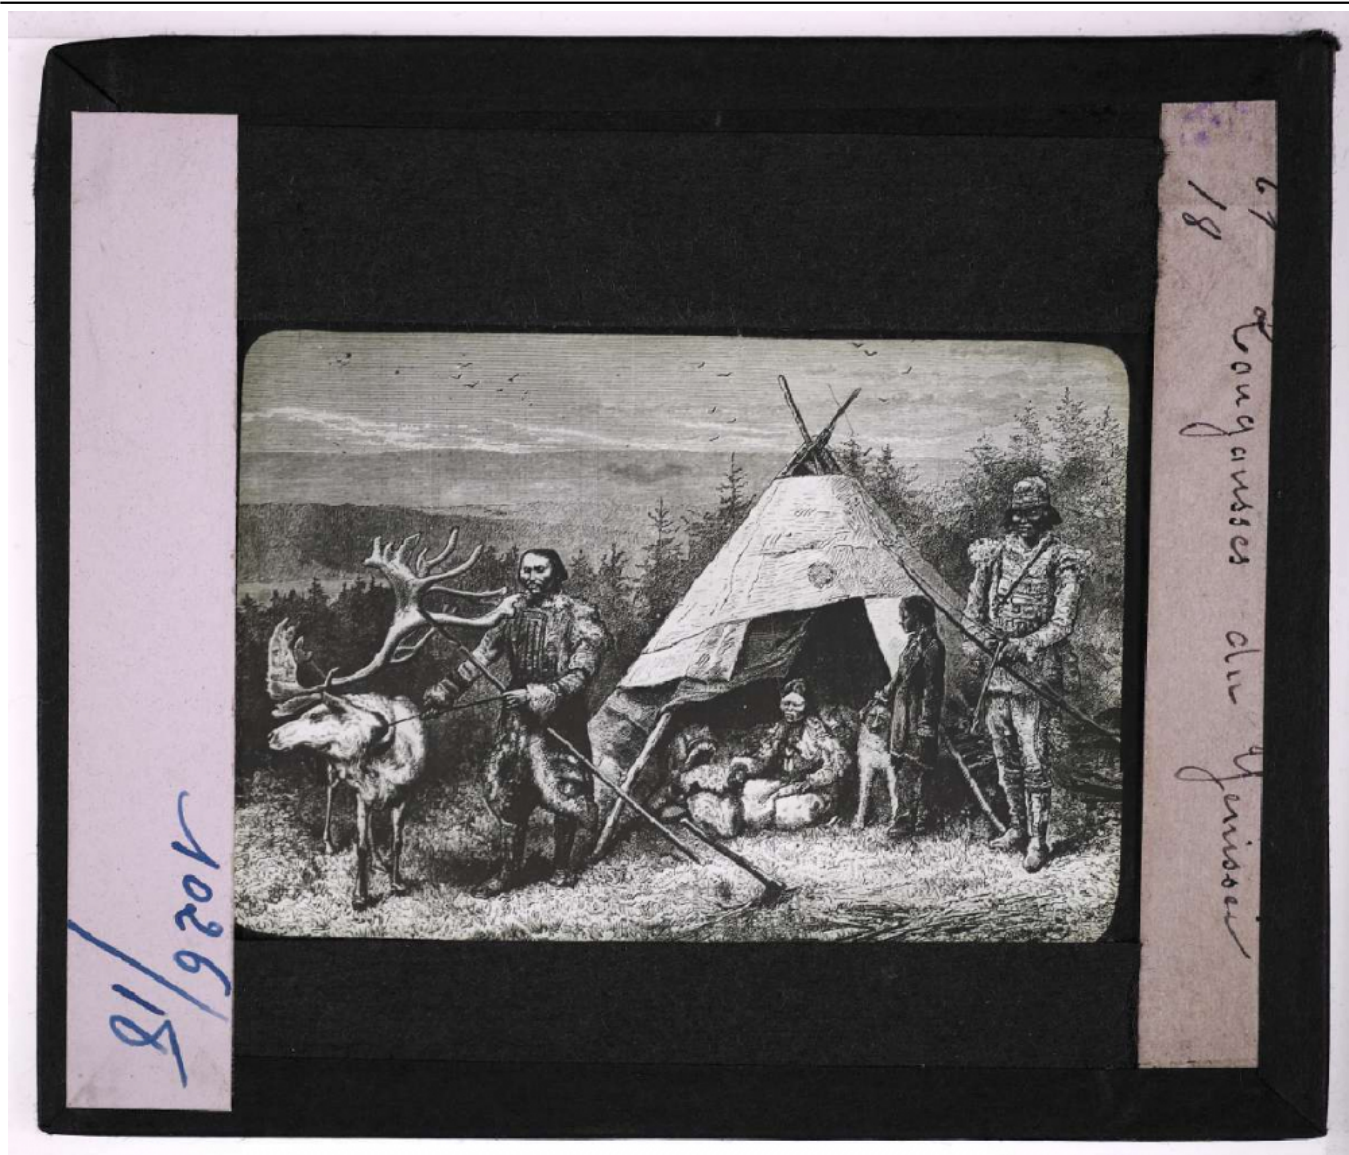 1026/
/18
61 Tougouses du Yenissei
18